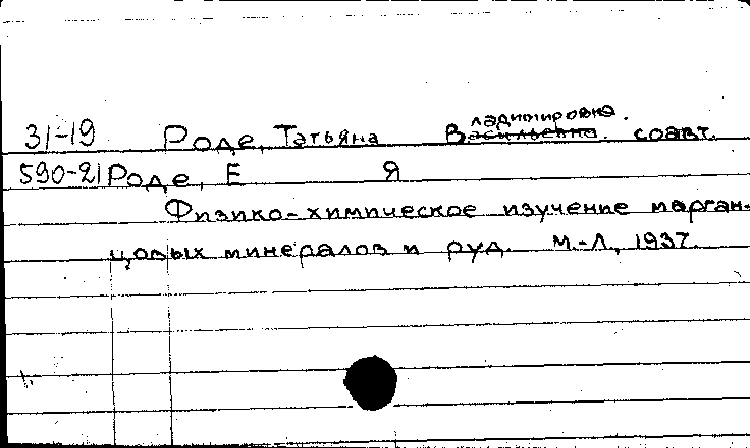 ладимировна.
31-19 Роде, Татьяна Васильевна. соавт.
590-21 Роде, Е Я
Физико-химическое изучение марган-
цовых минералов и руд. М.-Л., 1937.